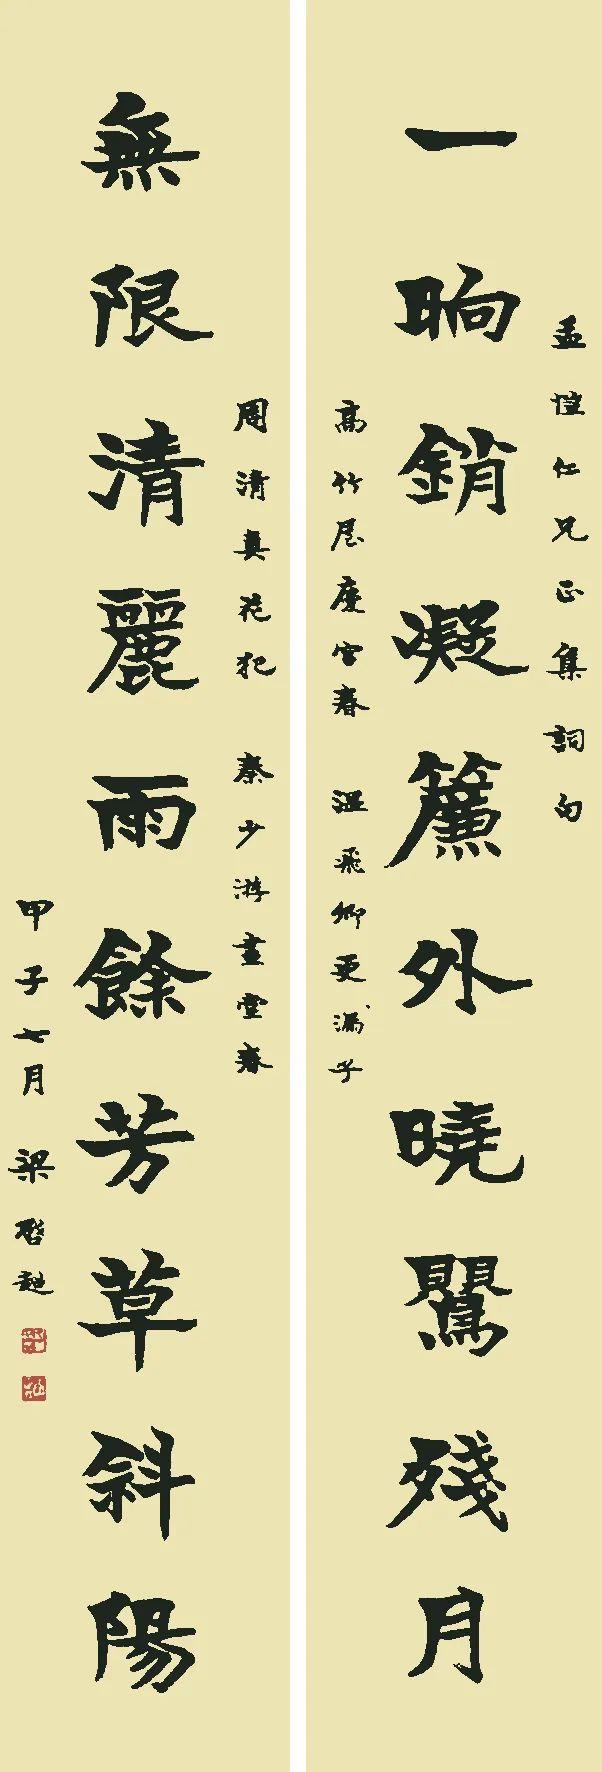 孟愷仁兄正集詞句
一晌銷凝簾外曉鶯殘月
高竹屋慶宮春 溫飛卿更漏子
周清真花犯 秦少游畫堂春
無限清麗雨餘芳草斜陽
甲子七月 梁啓超